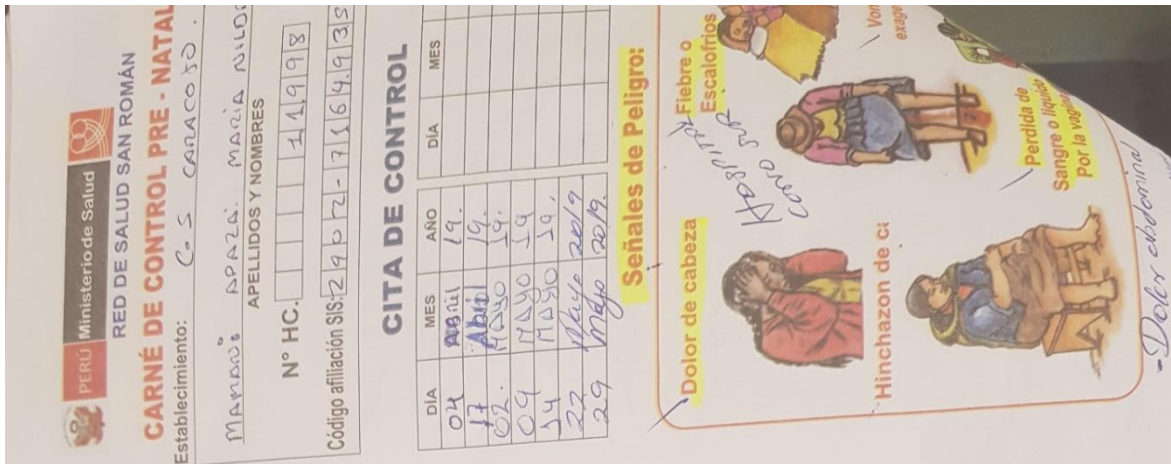 PERÚ Ministerio de Salud
RED DE SALUD SAN ROMÁN
CARNÉ DE CONTROL PRE - NATAL
Establecimiento: C.S CARACOTO.
MAMANI APAZA. MARIA NILD
APELLIDOS Y NOMBRES
N° HC. 11998
Código afiliación SIS: 2902-7164935
CITA DE CONTROL
DÍA MES AÑO DÍA MES
04 ABRIL 19.
17 Abril 19.
02. MAYO 19.
09 MAYO 19
14 MAYO 19.
22 Mayo 2019
29 Mayo 2019.
Señales de Peligro:
Dolor de cabeza
Hospital
Fiebre o
Escalofrios
Hinchazon de
Perdida de
Sangre o liquido
Por la vagina
- Dolor abdominal